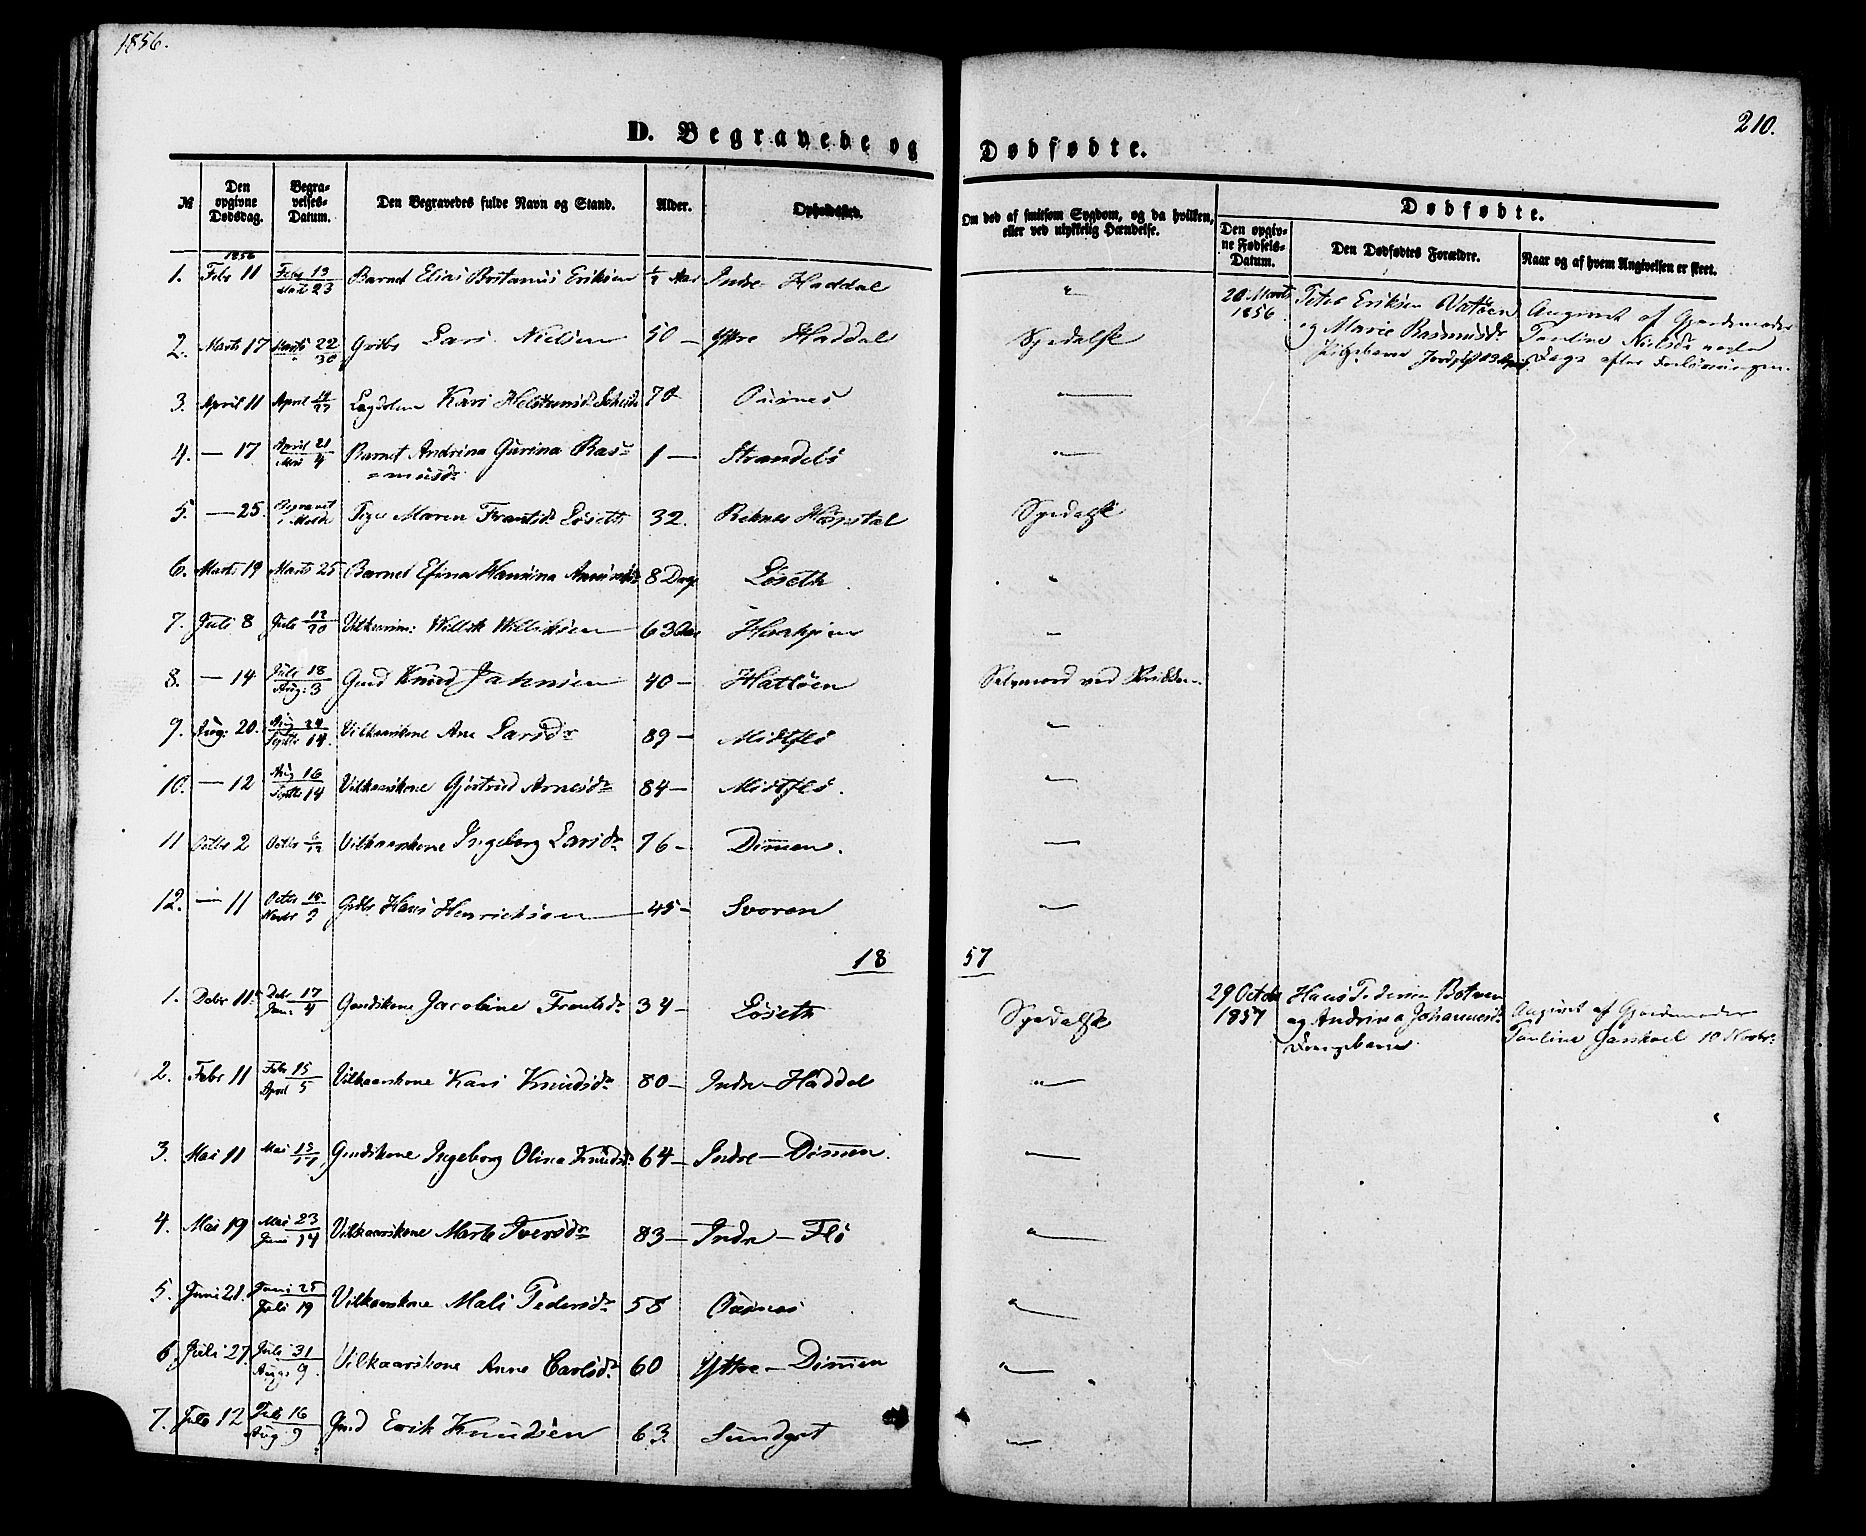 1856.
210.
D. Begravede og Dødfødte.
№ Den opgivne Dødsdag. Begravelses-Datum. Den Begravedes fulde Navn og Stand. Alder. Opholdssted. Om død af smitsom Sygdom, og da hvilken, eller ved ulykkelig Hændelse.
Dødfødte.
Den opgivne Fødsels-Datum. Den Dødfødtes Forældre. Naar og af hvem Angivelsen er skeet.
1856
1. Febr 11 Febr 13 / Marts 23 Barnet Elias Bostanus Eriksen ½ Aar Indre Haddal "
20 Marts 1856. Peter Eriksen Vatøen og Marie Rasmusdr Angivet af Gjordemoder Pauline Nielsdr Dage efter Forløsningen.
2. Marts 17 Marts 22 / 30 Grdbr Lars Nielsen 50 — Ytre Haddal Spedalsk
3. April 11 April Kari 70 "—
4. — 17 April 21 / Mai 4 Barnet Andrina Gurina Ras=
=musdr 1 — "—
5. — 25. Begravet i Molde Pige Maren Frantsdr Løseth 32. Reknes Hospital Spedalsk
6. Marts 19 Marts 25 Barnet Hansina 8 Dage Løseth "
7. Juli 8 Juli / 20 Willik Williksen 63 Aar "
8. — 14 Juli 18 / Aug: 3 Gmd Knud Johnsen 40 — Hatløen Selvmord ved
9. Aug: 20. Aug 24 / Septbr 14. Vilkaarskone Ane Larsdr 89 — Midtflø "
10. — 12 Aug 16 / Septbr 14 Vilkaarskone Gjertrud Arnesdr 84 — Midtflø. "
11 Octbr 2 Octbr Vilkaarskone Ingeborg Larsdr 76 — Dimen. "—
12. — 11 Octbr / Novbr 9 Grdbr Hans Henriksen 45 — Svoren "—
1857
1. Debr 11te Debr 17 / Jan: 4 Gmdskone Jacobine Frantsdr 34 — Løseth Spedalsk
29 Octbr 1857 Hans Pedersen Botnen og Andrina Johannesdr Drengebarn Angivet af Gjordemoder Pauline Garshoel 10 Novbr:
2. Febr 11 Febr 15 / April 5 Vilkaarskone Kari Knudsdr 80 — Indre-Haddal "—
3. Mai 11 Mai 15 / 17 Gmdskone Ingeborg Olina Knudsdr 64 — Indre-Dimmen. "—
4. Mai 19 Mai 23 / Juni 14 Vilkaarskone Marte Iversdr 83 — Indre-Flø "—
5. Juni 21. Juni 25 / Juli 19 Vilkaarskone Mali Pedersdr 58 "—
6. Juli 27. Juli 31 / Aug: 9. Vilkaarskone Anne Carlsdr 60 Yttre-Dimmen "—
7. Juli 12 Juli 16 / Aug. 9 Gmd Erik Knudsen 63. Sundgot "—